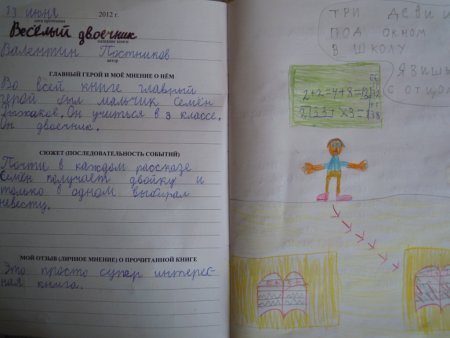 28 июня 2012 г.
дата прочтения
Весёлый двоечник
название книги
Валентин Постников
автор
ГЛАВНЫЙ ГЕРОЙ И МОЁ МНЕНИЕ О НЁМ
Во всей книге главный
герой был мальчик Семён
Он учиться в 3 классе.
Он двоечник.
СЮЖЕТ (ПОСЛЕДОВАТЕЛЬНОСТЬ СОБЫТИЙ)
Почти в каждом рассказе
Семён получает двойку и
только в одном выбирал
невесту.
МОЙ ОТЗЫВ (ЛИЧНОЕ МНЕНИЕ) О ПРОЧИТАННОЙ КНИГЕ
Это просто супер интерес-
ная книга.
ТРИ ДЕВИ
ПОД ОКНОМ
В ШКОЛУ
С ОТЦО
2+2=4+8=